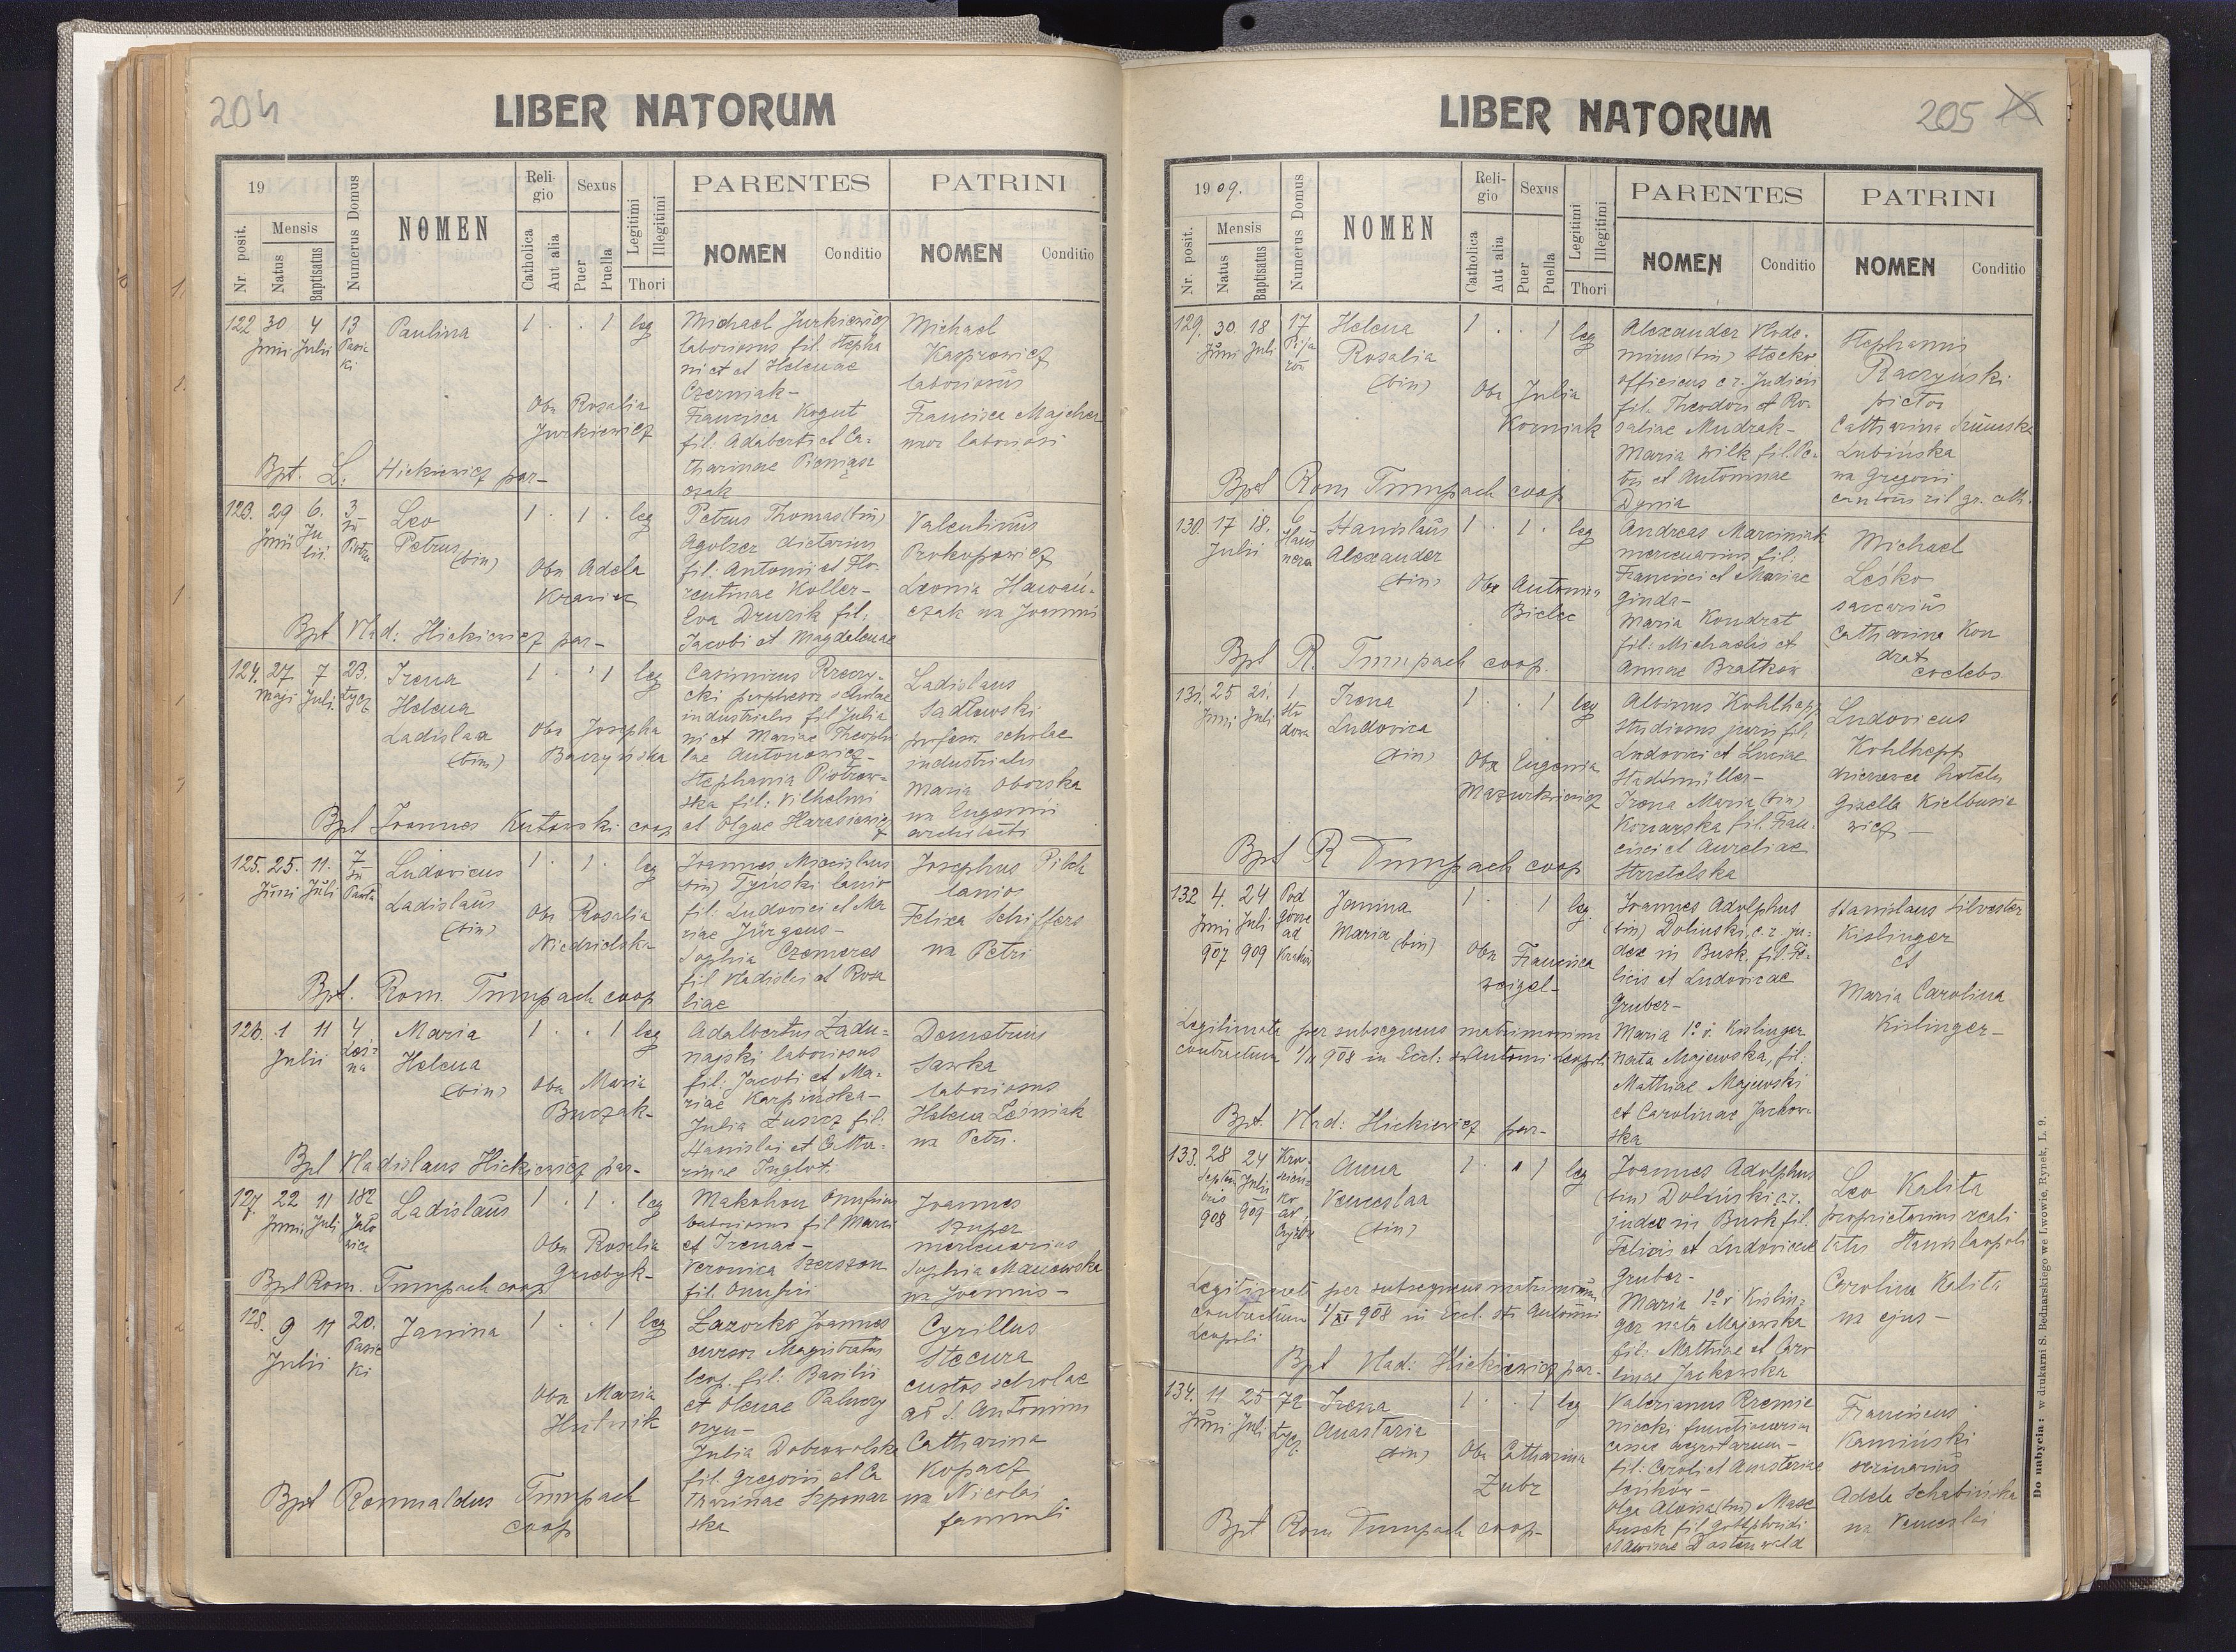 204
LIBER NATORUM
19
Nr. posit.
Mensis
Natus
Baptisatus
Numerus Domus
NOMEN
Religio
Catholica
Aut alia
Sexus
Puer
Puella
Legitimi
Illegitimi
Thori
PARENTES
NOMEN
Conditio
PATRINI
NOMEN
Conditio
122 30 4 13 Paulina 1 . . 1 leg
Junii Julii Pasie
ki
Michael Jurkiewicz
laboriosus fil. Stepha
ni et Helenae
Czerniak-
Francisca Kogut
fil. Adalberti et Ca-
tharinae
Michael
Kasprowicz
laboriosus
Francisca Majcher
uxor laboriosi
Obs Rosalia
Jurkiewicz
Bpt. L. Hickiewicz par-
123. 29 6. 3 Leo 1 . 1 . leg
Junii Ju
lii Piotra
Petrus
(bin)
Petrus Thomas (bin)
Agolzer dietarius
fil: Antonii et Flo-
rentinae Koller-
Eva Druzik fil:
Jacobi et Magdalenae
Valentinus
Prokopowicz
Leonia
na Joannis
Obs Adela
Bpt Vlad: Hickiewicz par-
124. 27 7 23. Irena 1 . . 1 leg
Maji Juli Łycz
Helena
Ladislaa
(bin)
Casimirus
cki professor scholae
industrialis fil Julia
ni et Mariae Theophi
lae Antonowicz-
Stephania Piotrow-
ska fil: Vilhelmi
et Olgae Harasiewicz
Ladislaus
Sadłowski
profesor scholae
industrialis
Maria Oborska
na Eugenii
architecti
Obs Josepha
Baczyńska
Bpt Joannes Kutowski coop
125. 25. 11. 7 Ludovicus 1 . 1 . leg
Junii Juli Pawła
Ladislaus
(bin)
Joannes Miecislaus
(bin) Tyński lanio
fil: Ludovici et Ma
riae Jürgens-
Sophia Czemeres
fil Vladislai et Rosa
liae
Josephus Pilch
lanios
Felixa Schiffers
na Petri
Obs Rosalia
Niedzielska
Bpt. Rom. Trumpach coop
126. 1 11 4 Maria 1 . . 1 leg
Julii Leś-
na
Helena
(bin)
Adalbertus Zadu-
najski laboriosus
fil: Jacobi et Ma-
riae Karpińska-
Julia Łuszcz fil:
Stanislai et Catha-
rinae Inglot
Demetrius
Sawka
laboriosus
Helena Leśniak
na Petri.
Obs Maria
Burczak-
Bpt Vladislaus Hickiewicz par-
127. 22 11 182 Ladislaus 1 . 1 . leg
Junii Juli
Makohon Onufrius
laboriosus fil Marci
et Irenae-
Veronica Szerszon
fil. Onufrii
Joannes
Szuper
mercenarius
Sophia Manowska
na Joannis-
Obs Rosalia
Grzebyk-
Bpt Rom. Trumpach coop
128. 9 11 20. Janina 1 . . 1 leg
Julii Pasie
ki
Lazorko Joannes
cursor Magistratus
leop. fil: Basilii
et Olenae
Julia Dobrowolska
fil. Gregorii et Ca
tharinae Szponar
ska
Cyrillus
Stecura
custos scholae
ad S. Antonium
Catharina
Kopacz
na Nicolai
famuli
Obs Maria
Hutnik
Bpt Romualdus Trumpach
coop
205
LIBER NATORUM
1909.
Nr. posit.
Mensis
Natus
Baptisatus
Numerus Domus
NOMEN
Religio
Catholica
Aut alia
Sexus
Puer
Puella
Legitimi
Illegitimi
Thori
PARENTES
NOMEN
Conditio
PATRINI
NOMEN
Conditio
129. 30 18 17 Helena 1 . . 1 leg
Juni Juli Pija
rów
Rosalia
(bin)
Alexander Vlodo-
mirus (bin) Stecko
officius c.r. Judicii
fil. Theodori et Ro-
saliae Mudrak-
Maria Wilk fil. Pe-
tri et Antoninae
Dynia
Stephanus
Raczyński
pictor
Catharina
Lubińska
na Gregorii
Obs Julia
Korniak
Bpt Rom Trumpach coop
130. 17 18. 9 Stanislaus 1 . 1 . leg
Julii Haus
nera
Alexander
(bin)
Andreas Marciniak
mercenarius fil.
Francisci et Mariae
Ginda-
Maria Kondrat
fil: Michaelis et
Annae Bratkow
Michael
Leśko
saccarius
Catharina Kon
drat
coelebs
Obs Antonina
Bielec
Bpt R. Trumpach coop.
131. 25 21. 1 Irena 1 . . 1 leg
Junii Juli Sta
dowa
Ludovica
(bin)
Albinus Kohlhepp
studiosus juris fil.
Ludovici et Luciae
Stadtmüller-
Irena Maria (bin)
Konarska fil. Fran-
cisci et Aureliae
Strzelska
Ludovicus
Kohlhepp
dzierzawca hotelu
Gisella Kiełbusie
wicz -
Obs Eugenia
Mazurkiewicz
Bpt R Trumpach coop
132 4. 24 Pod Janina 1 . 1 leg.
Juni Juli górze
907 909 ad Kraków
Maria (bin)
Joannes Adolphus
(bin) Doliński, c.r. ju-
dex in Busk, fil. Fe-
licis et Ludovicae
Gruber-
Maria 1º v. Kislinger
nata Majewska, fil:
Mathiae Majewski
et Carolinae Jackow-
ska
Stanislaus Silvester
Kislinger
et
Maria Carolina
Kislinger-
Obs Francisca
Weigel-
Legitimata per subsequens matrimonium
contractum 1/11 908 in Eccl: s. Antonii Leopoli
Bpt. Vlad: Hickiewicz par-
133. 28 24 Kro Anna 1 . . 1 leg
Septem Juli
bris
908 909
Venceslaa
(bin)
Joannes Adolphus
(bin) Doliński c.r.
judex in Busk fil.
Felicis et Ludovicae
Gruber-
Maria 1º v Kislin-
ger nata Majewska
fil: Mathiae et Caro
linae Jackowska
Leo Kalita
proprietarius reali
tatis Stanislaopoli
Carolina Kalita
na ejus -
Legitimata per subsequens matrimonium
contractum 1/XI 908 in Eccl. sti Antonii
Leopoli
Bpt Vlad: Hickiewicz par-
134. 11 25 72 Irena 1 . . 1 leg
Juni Juli Łycz.
Anastasia
(bin)
Valerianus Krzemie
niecki functionarius
cassae aegrotarum-
fil: Caroli et Anastasiae
Olga Aloisa (bin) Masc
Franciscus
Kamiński
Adela Schabińska
na Venceslai
Obs Catharina
Zubr
Bpt Rom Trumpach coop-
Do nabycia: w drukarni S. Bednarskiego we Lwowie, Rynek, L. 9.